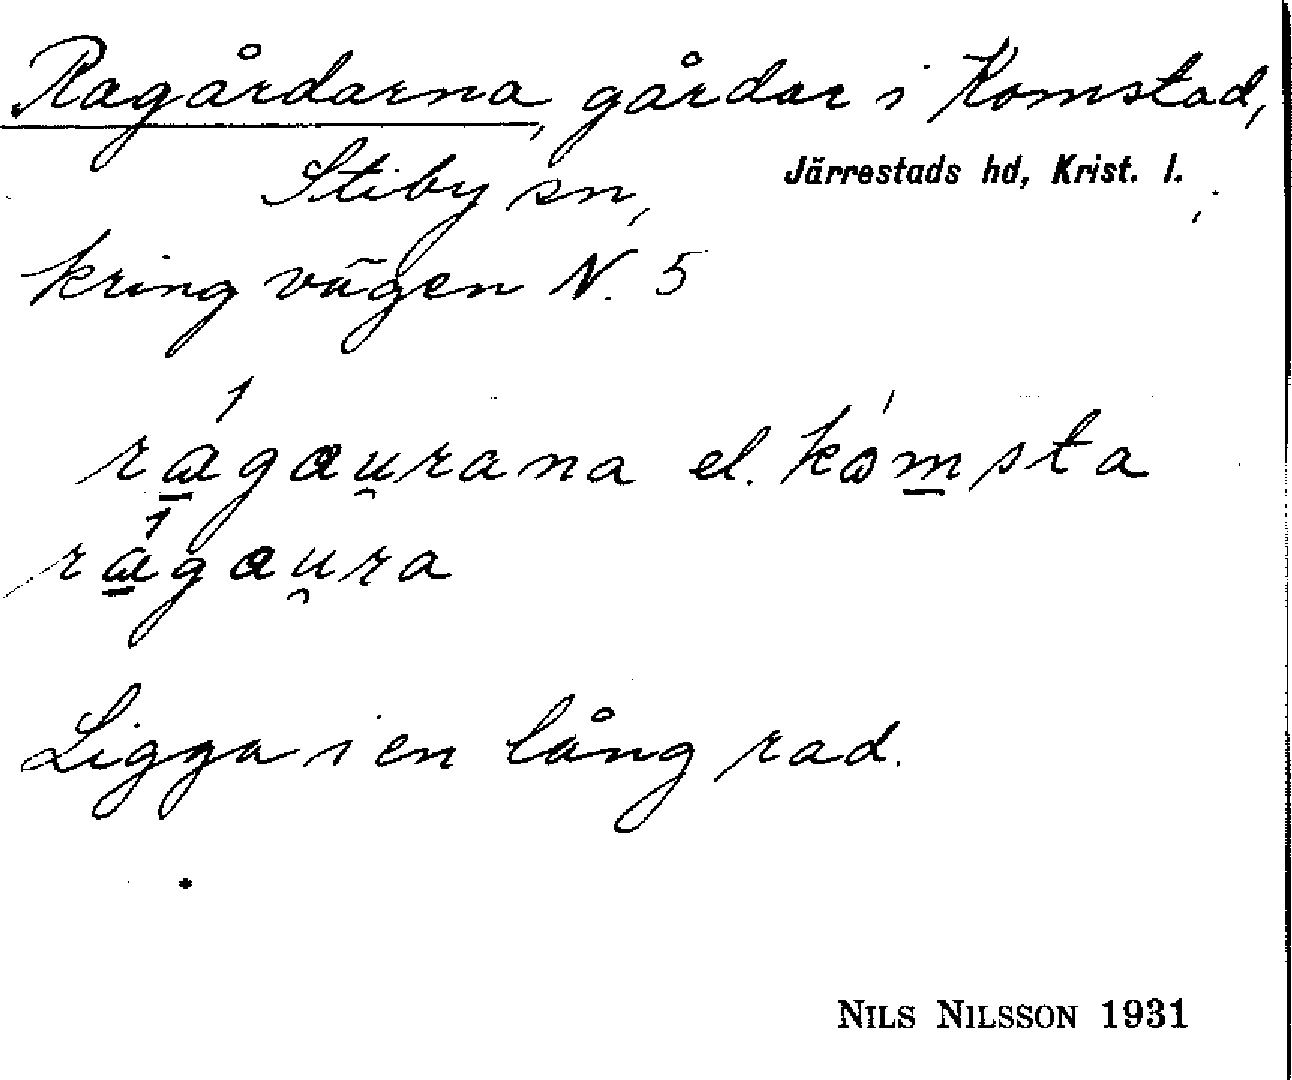 Ragårdarna, gårdar i Komstad,
Stiby sn, Järrestads hd, Krist. l.
kring vägen N. 5
rágaurana el. kómsta
rágaura
Ligga i en lång rad.
NILS NILSSON 1931